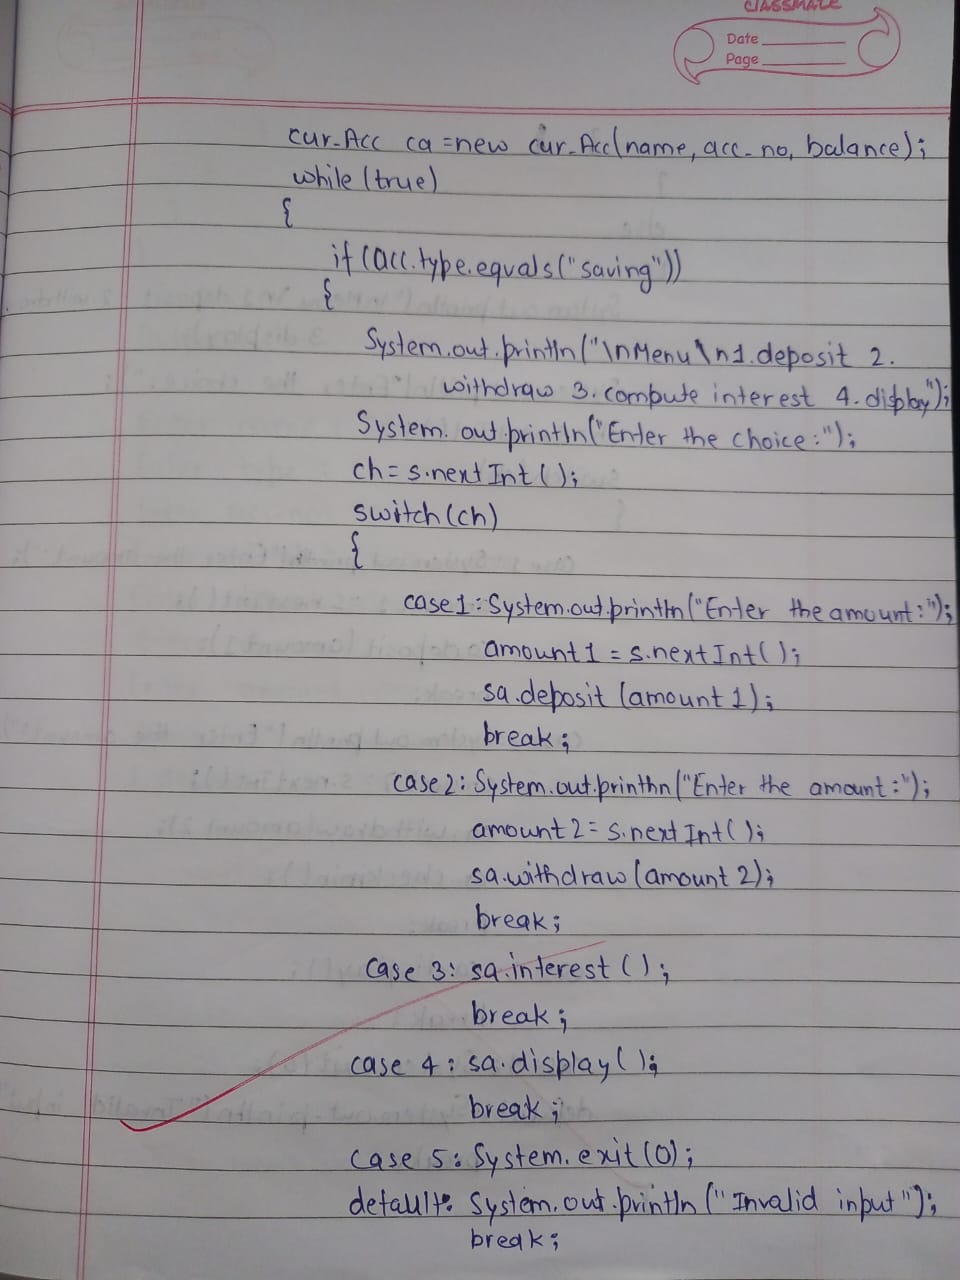 CLASSMATE
Date
Page
cur_Acc ca = new cur_Acc(name, acc_no, balance);
while (true)
{
if (acc.type.equals("saving"))
{
System.out.println("\nMenu\n1.deposit 2.
withdraw 3. compute interest 4. display");
System.out.println("Enter the choice:");
ch = s.nextInt();
switch(ch)
{
case 1: System.out.println("Enter the amount:");
amount1 = s.nextInt();
sa.deposit (amount 1);
break;
case 2: System.out.println("Enter the amount:");
amount 2 = s.nextInt();
sa.withdraw (amount 2);
break;
case 3: sa.interest ();
break;
case 4: sa.display();
break;
case 5: System.exit(0);
default: System.out.println ("Invalid input");
break;